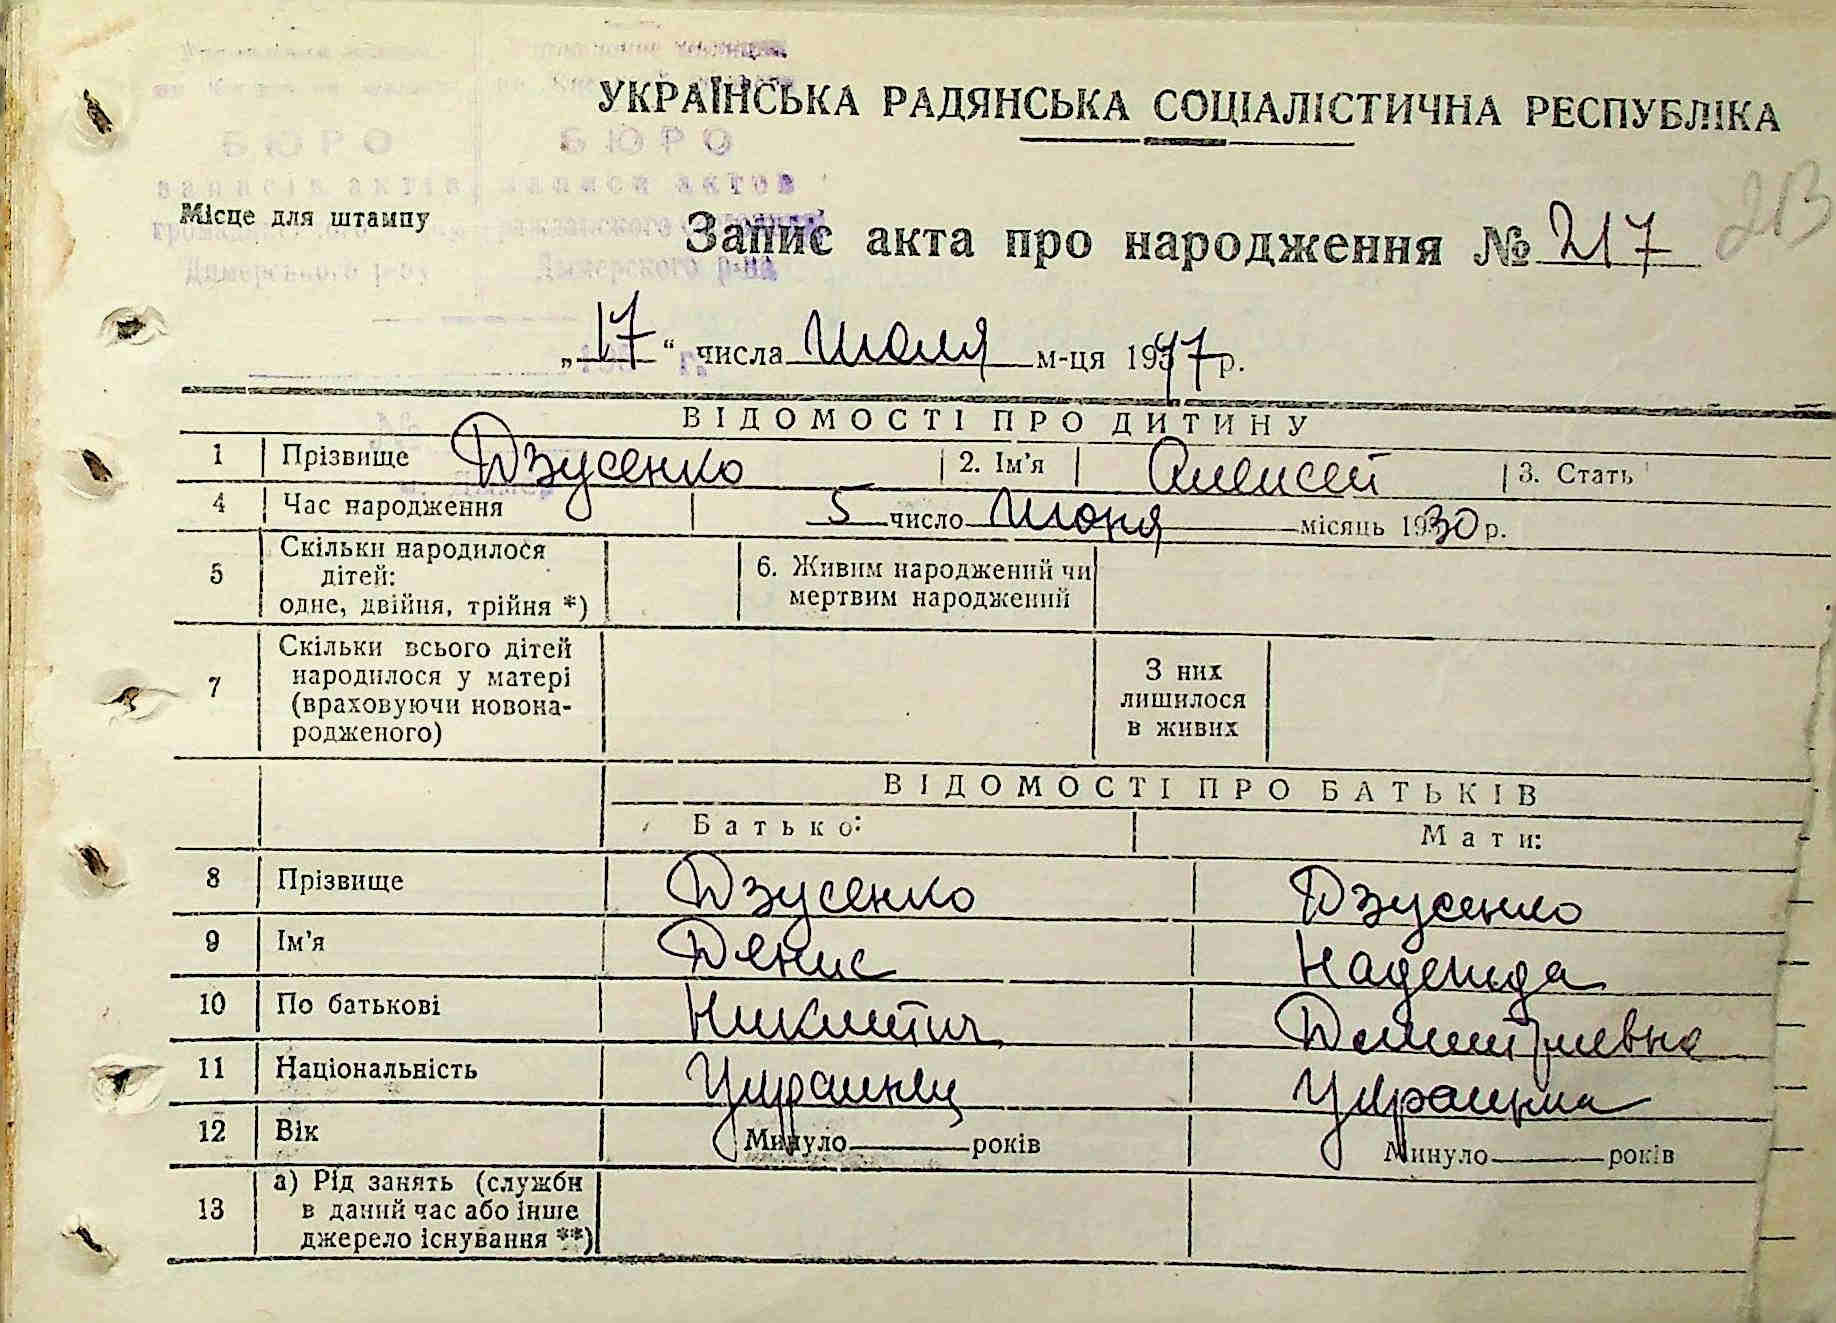 БЮРО БЮРО
записів актів записи актов
УКРАЇНСЬКА РАДЯНСЬКА СОЦІАЛІСТИЧНА РЕСПУБЛІКА
213
Місце для штампу
Димерського р-ну Дымерского р-на
Запис акта про народження № 217
„17“ числа Июля м-ця 1947 р.
ВІДОМОСТІ ПРО ДИТИНУ
1 Прізвище Дзусенко 2. Ім'я Алексей 3. Стать
4 Час народження 5 число Июня місяць 1930 р.
5 Скільки народилося дітей: одне, двійня, трійня *) 6. Живим народжений чи мертвим народжений
7 Скільки всього дітей народилося у матері (враховуючи новона-родженого) З них лишилося в живих
ВІДОМОСТІ ПРО БАТЬКІВ
Батько: Мати:
8 Прізвище Дзусенко Дзусенко
9 Ім'я Денис Надежда
10 По батькові Никитич Дмитриевна
11 Національність Украинец Украинка
12 Вік Минуло років Минуло років
13 а) Рід занять (служби в даний час або інше джерело існування **)